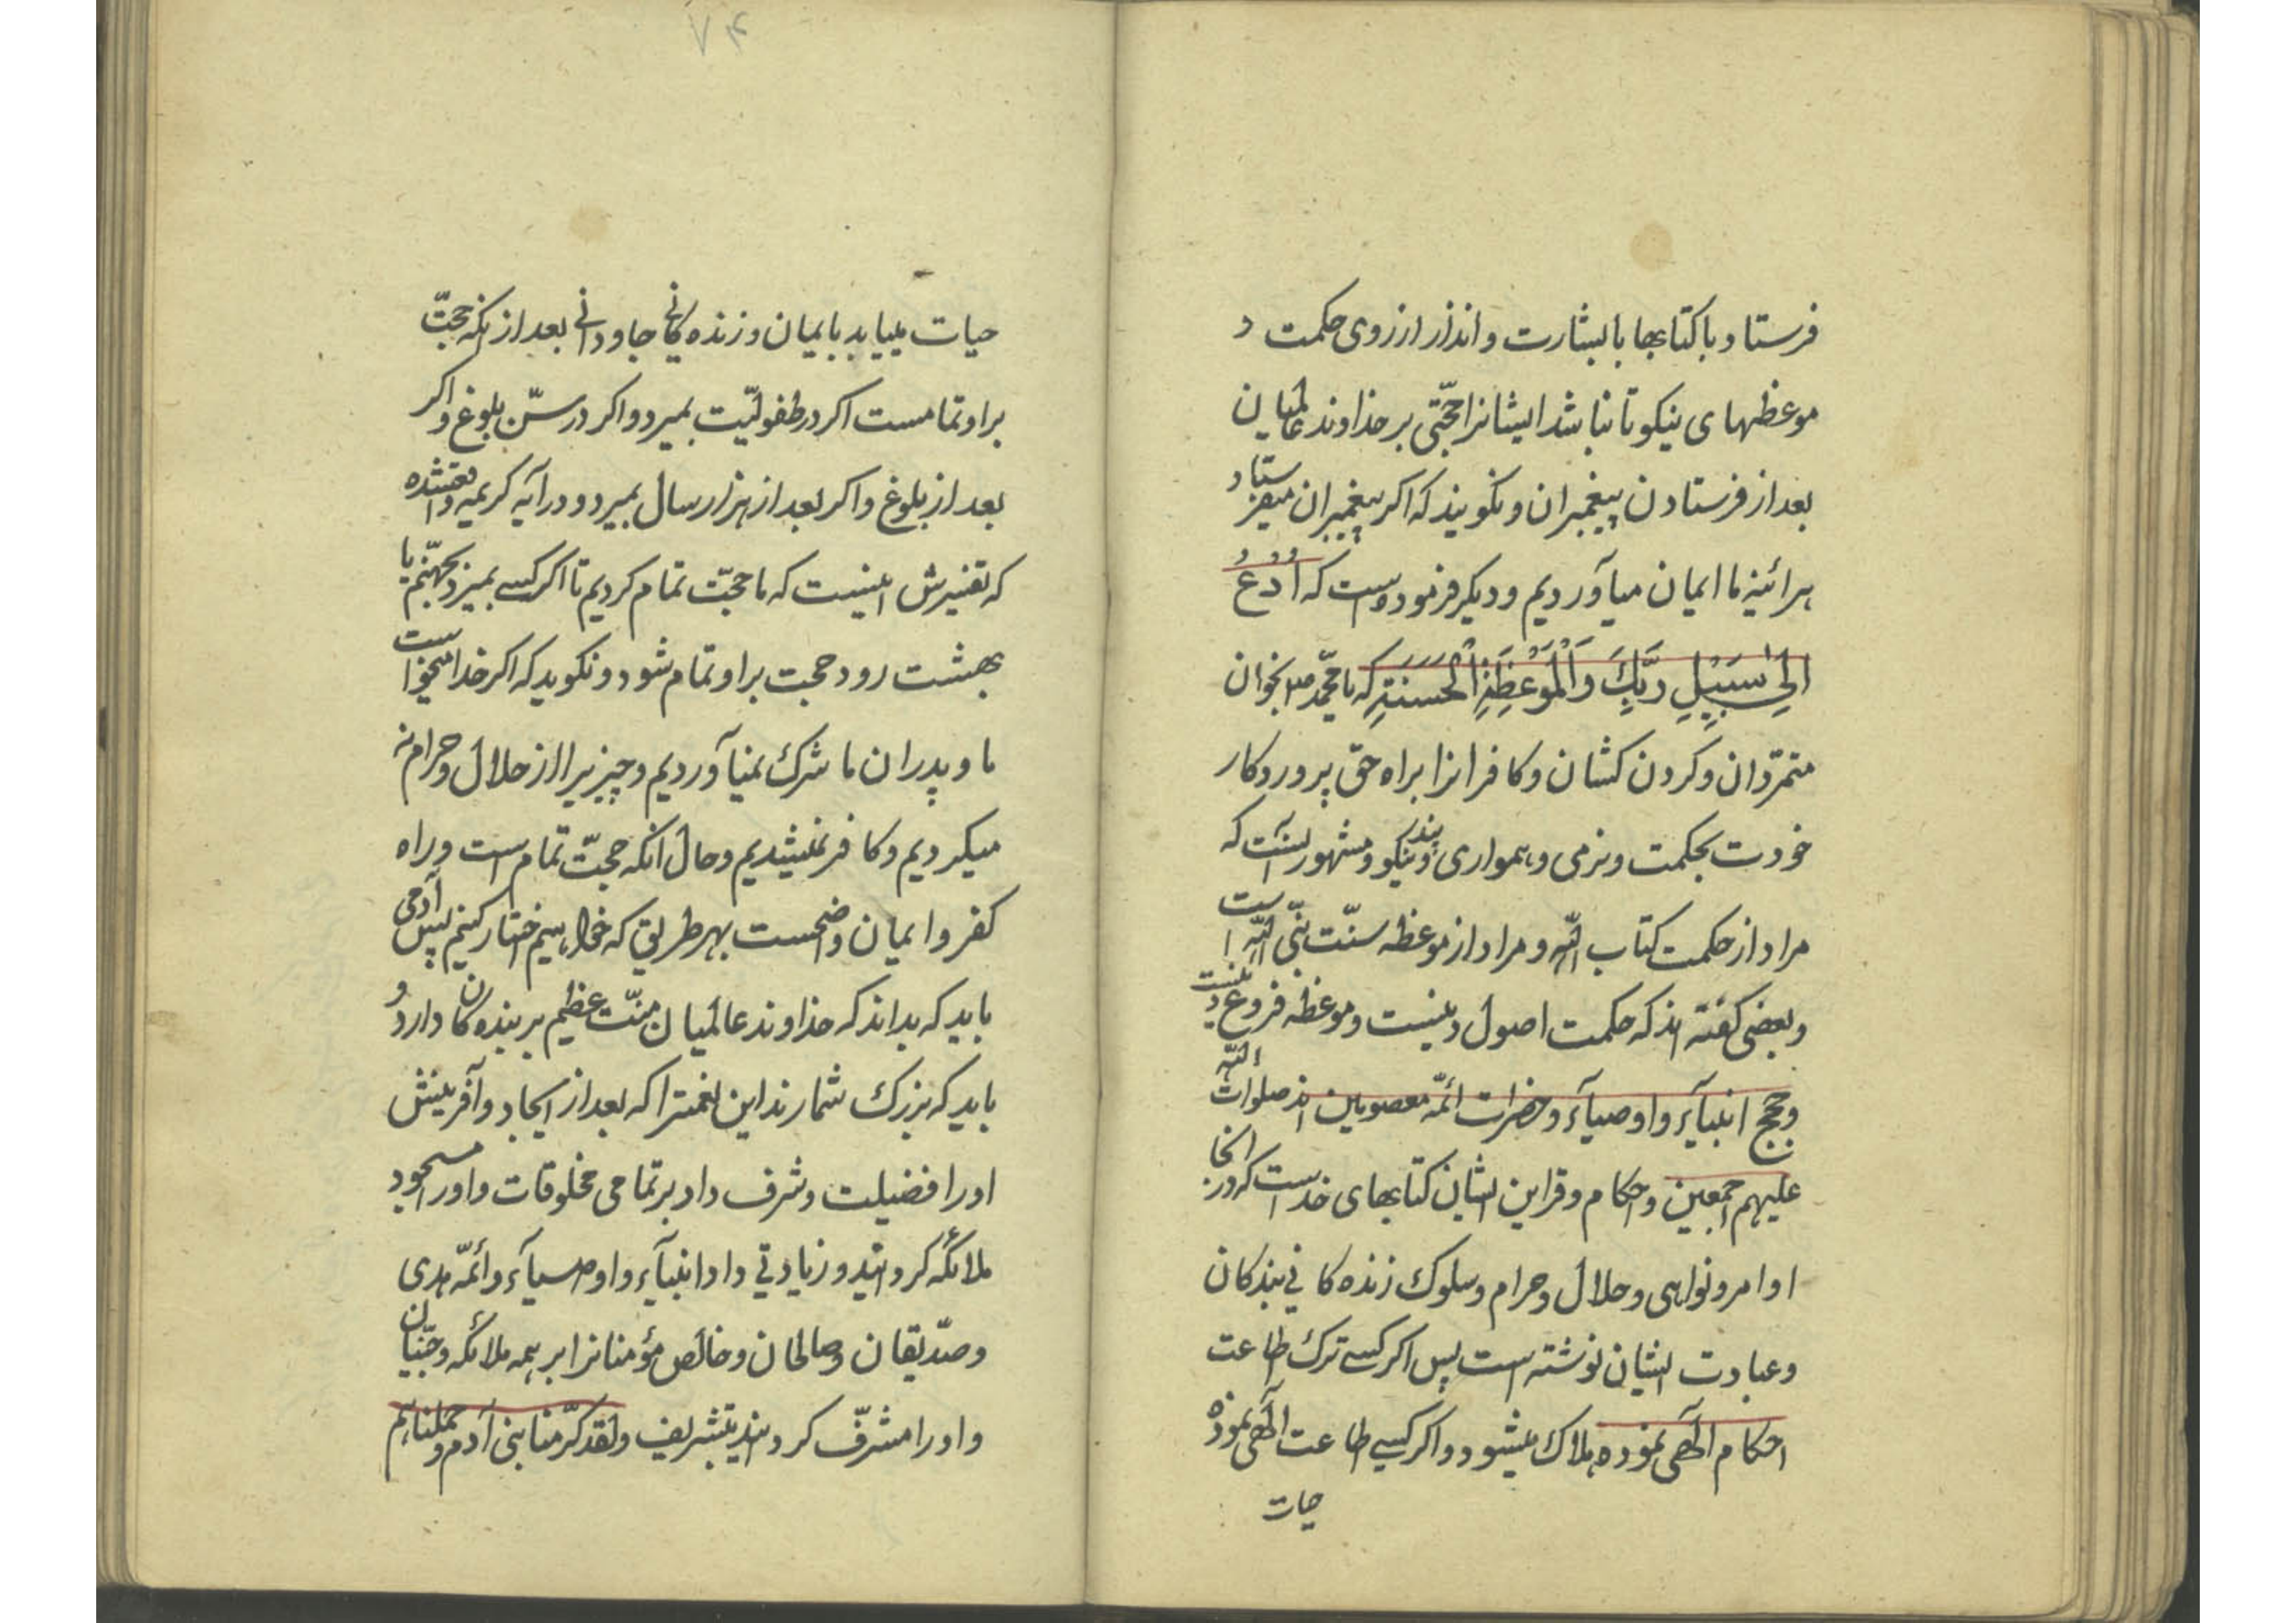 فرستاد با کتابها با بشارت و انذار از روی حکمت و
موعظهای نیکو تا نباشد ایشانرا حجّتی بر خداوند عالمیان
بعد از فرستادن پیغمبران و نکویند که اکر پیغمبران میفرستاد
هرائینه ما ایمان میآوردیم و دیکر فرموده است که اُدْعُ
اِلیٰ سَبیلِ رَبِّكَ وَالْمَوْعِظَةِ الْحَسَنَةِ که یا محمّد ص بخوان
متمرّدان و کردن کشان و کافرانرا براه حق پروردکار
خودت بحکمت و نرمی و همواری و پند نیکو و مشهور آنست که
مراد از حکمت کتاب اللّه و مراد از موعظه سنّت نبّی اللّه است
و بعضی کفته اند که حکمت اصول دینست و موعظه فروع دینست
و حجج انبیآء و اوصیآء و حضرات ائمّه معصومین اند صلوات اللّه
علیهم اجمعین و احکام و قراین ایشان کتابهای خداست که در آنجا
اوامر و نواهی و حلال و حرام و سلوك زنده کانی بندکان
و عبادت ایشان نوشته است پس اکر کسی ترك طاعت
احکام الٓهی نموده هلاك میشود و اکر کسی طاعت الٓهی نموده
حیات
۷۴
حیات مییابد بایمان و زنده کانی جاودانی بعد از آنکه حجّت
بر او تمامست اکر در طفولیّت بمیرد و اکر در سنّ بلوغ و اکر
بعد از بلوغ و اکر بعد از هزار سال بمیرد و در آیه کریمه واقعشده
که تفسیرش اینست که ما حجّت تمام کردیم تا اکر کسی بمیرد بجهنّم یا
بهشت رود حجت بر او تمام شود و نکوید که اکر خدا میخواست
ما و پدران ما شرك نمیآوردیم و چیزیرا از حلال و حرام نه
میکردیم و کافر نمیشدیم و حال آنکه حجّت تمام است و راه
کفر و ایمان واضحست بهر طریق که خواهیم اختیار کنیم پس آدمی
باید که بداند که خداوند عالمیان منّت عظیم بر بنده کان دارد و
باید که بزرك شمارند این نعمترا که بعد از ایجاد و آفرینش
او را فضیلت و شرف داد بر تمامی مخلوقات و او را مسجود
ملائکه کردانید و زیادتی داد انبیآء و اوصیآء و ائمّه هدی
و صدّیقان و صالحان و خالص مؤمنانرا بر همه ملائکه و جنّیان
و او را مشرّف کردانید بتشریف ولقد کرّمنا بنی آدم و حملناهم